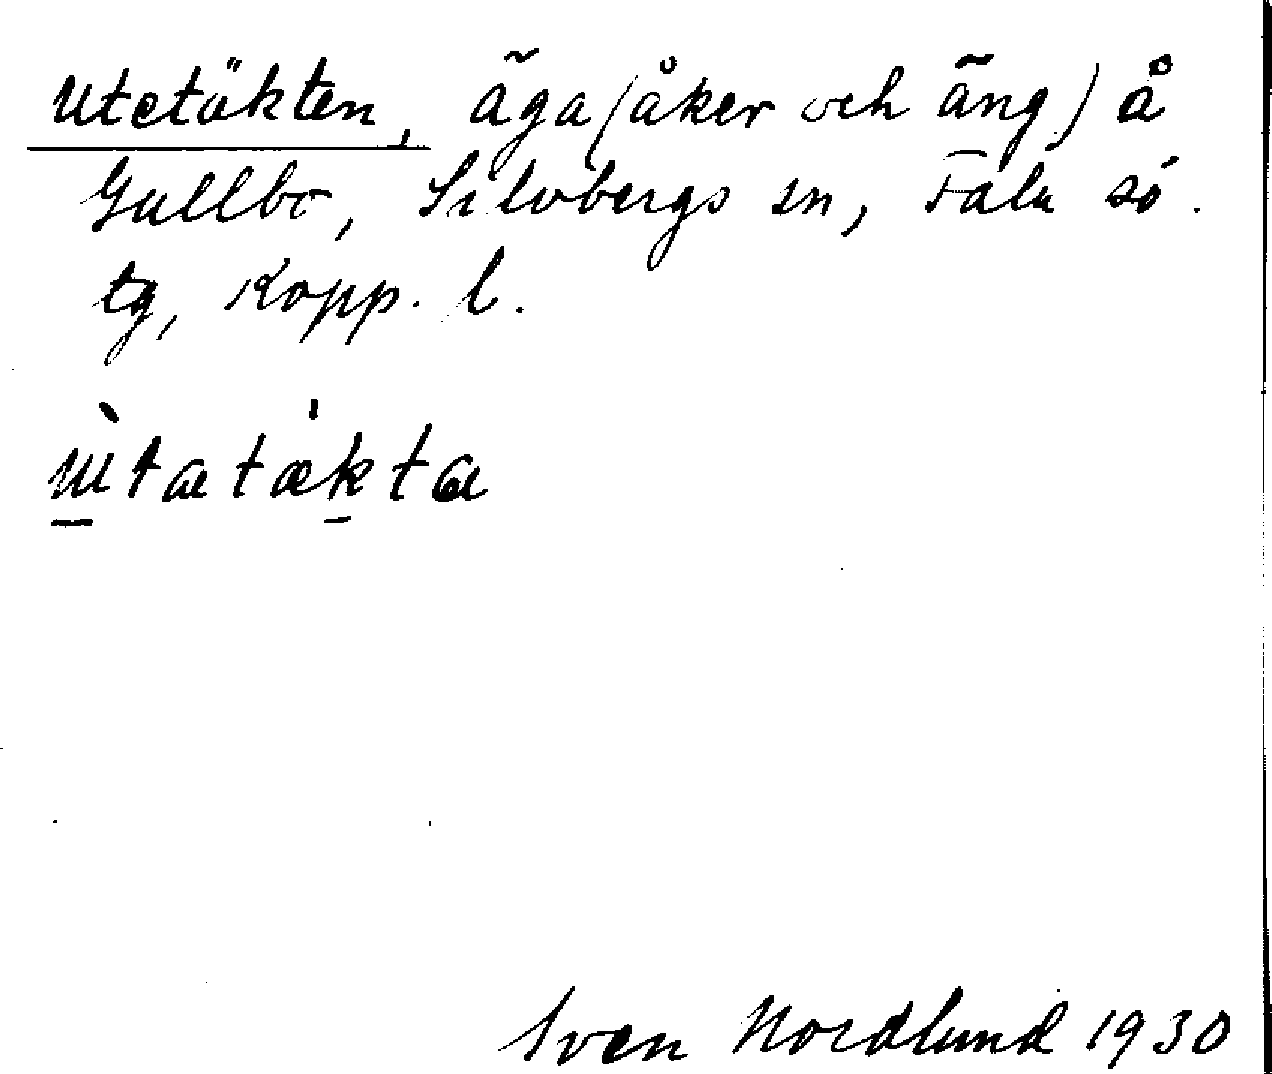 Utetäkten, äga (åker och äng) å
Gullbo, Silvbergs sn, Falu sö.
tg, Kopp. l.
ùtatækta
Sven Nordlund 1930